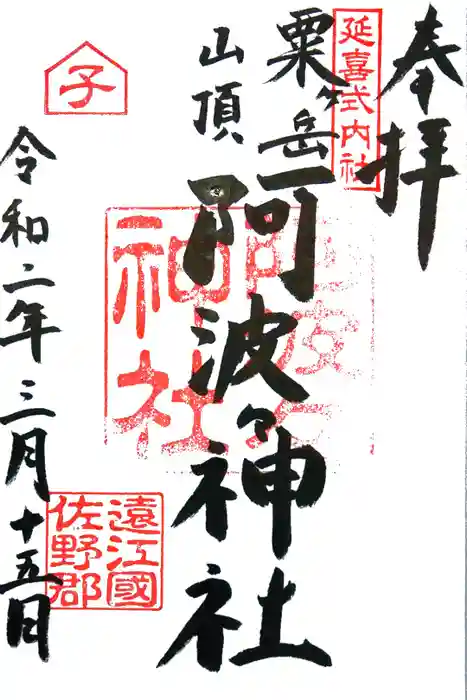 奉拝
延喜式内社
粟ヶ岳
山頂
阿波々神社
神社
子
遠江國
佐野郡
令和二年三月十五日